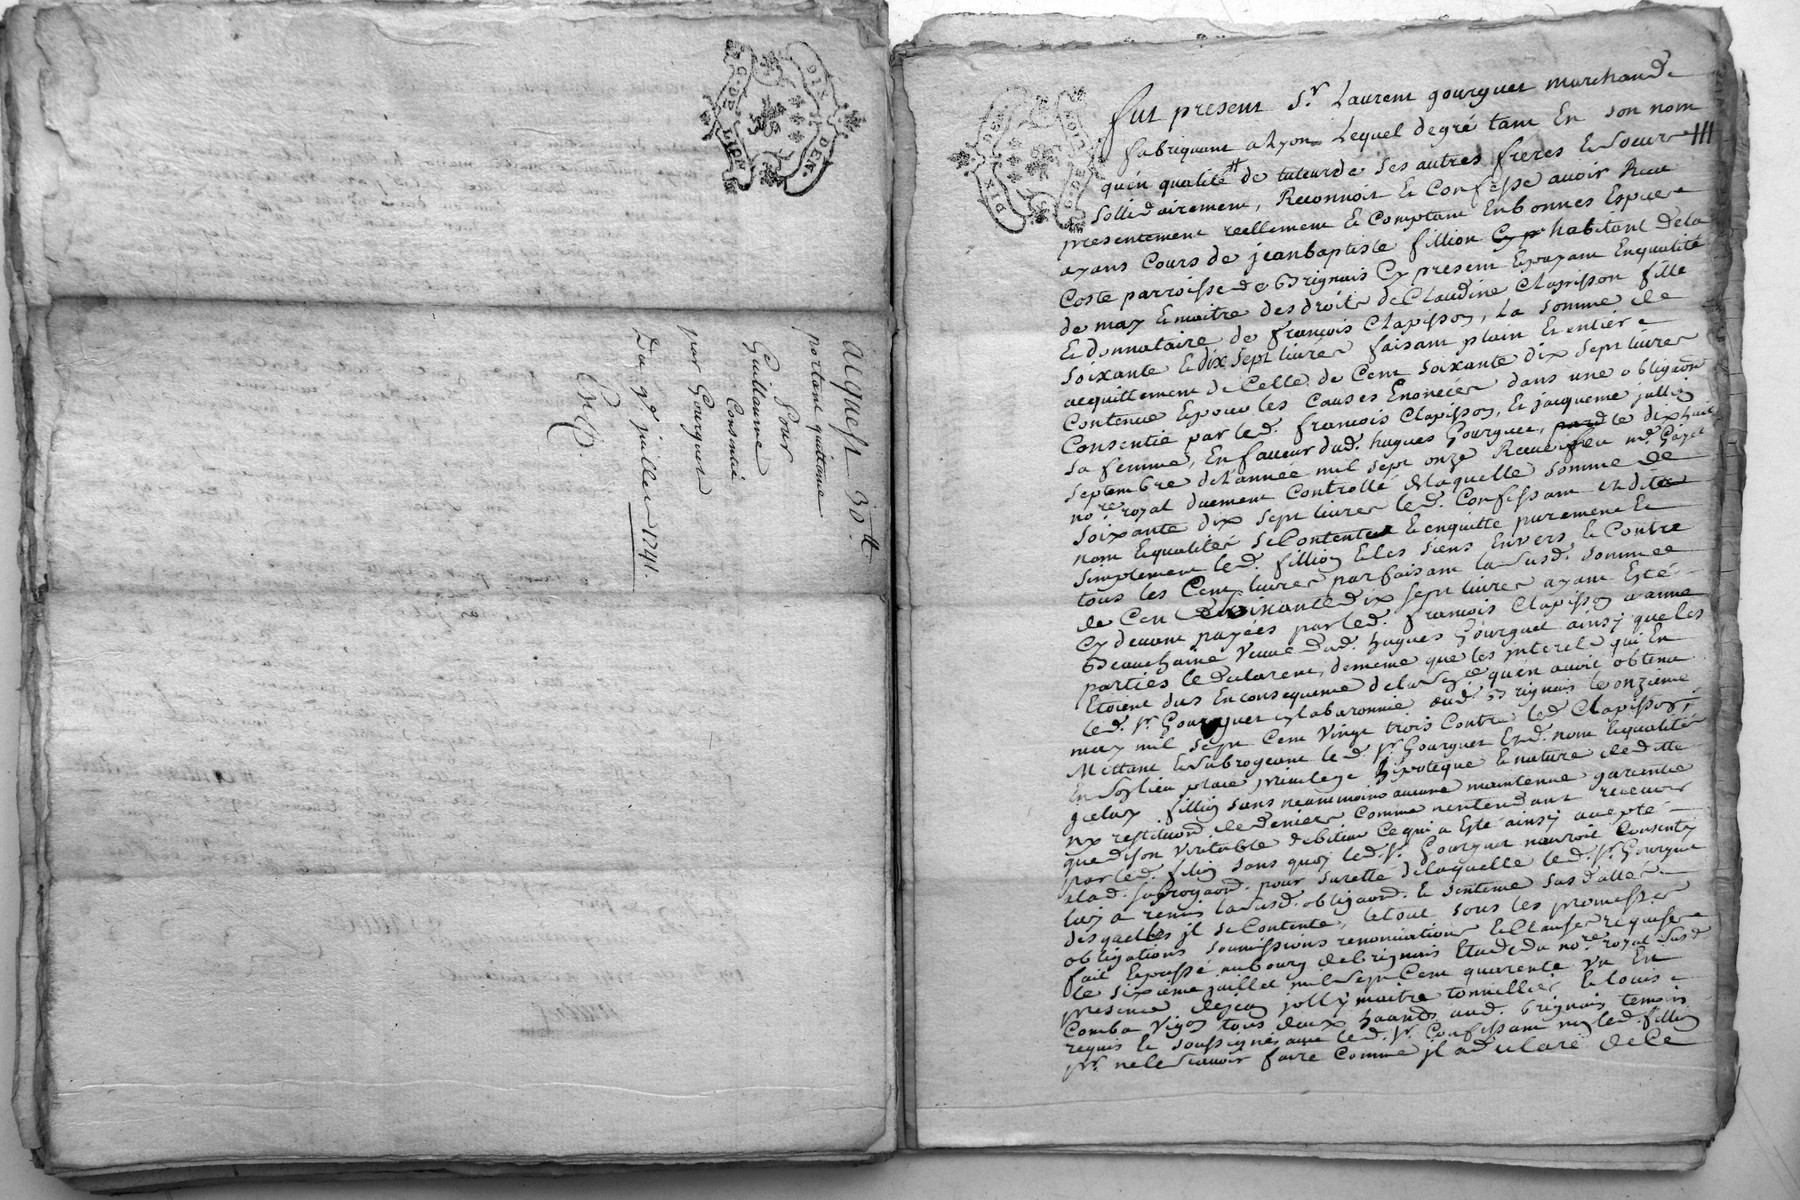 acquest 30.tt
portant quittance
pour
Guillaume
Consentie
par Gourguet
Du 9e. juillet 1741.
DIX DEN.
G. DE LION
fut present Sr. Laurent gourguet marchand
fabriquant a Lyon Lequel de gré tant En son nom
III
qu'en qualité de tuteur de ses autres freres & soeurs
sollidairement, Reconnoit & Confesse avoir Receu
presentement reellement & Comptant En bonnes Espece
ayans Cours de jean baptiste fillion habitant de la
Coste parroisse de Brignais Cy present & payant En qualité
de mary & maitre des droits de Claudine Clapisson fille
& donnataire de françois Clapisson, La somme de
soixante & dix sept livres faisant plain & entier
acquittement de Celle de Cent soixante dix sept livres
Contenue & pour les Causes Enoncées dans une obligaon
Consentie par led. francois Clapisson, & jacqueme jullien
sa femme, En faveur dud. hugues Gourguet, le dix huit
septembre de l'année mil sept onze Receue feu me. Gayet
nore royal duement Controllé de laquelle somme de
soixante dix sept livres led. Confessant Esdits
nom & qualités se Contente & en quitte purement &
simplement led. fillion & les siens Envers & Contre
tous les Cent livres parfaisant la susd. somme
de Cent soixante dix sept livres ayant Esté
Cy devant payées par led. francois Clapisson a anne
Beauchaine veuve dud. hugues Gourguet ainsy que les
parties le declarent, de meme que les interets qui En
Etoient dus En consequence de la quen avoit obtenu
led. sr. Gourguet En la baronnie dud. Brignais le onzieme
may mil sept Cent vingt trois Contre led. Clapisson,
Mettant & subrogeant led. sr. Gourguet Esd. nom & qualités
En son lieu place privilege hipoteque & nature de dette
jceluy fillion sans neanmoins aucune maintenue garentie
ny restituon. de deniers comme n'entendant recevoir
que de son veritable debiteur Ce qui a Esté ainsy accepté
par led. fillion sans quoy led. sr. Gourguet n'auroit Consenty
a lad. subrogaon. pour surette de laquelle led. sr. Gourguet
luy a remis la susd. obligaon. & sentence sus d'attér
desquelles jl se Contente, le tout sous les promesses
obligations soumissions renonciations & Clauses requises
fait & passé au bourg de brignais Etude du nore. royal susd
le sixieme juillet mil sept Cent quarente un En
presence de jean jolly maitre tonnellier & Louis
Comba vigon tous deux hants. aud. brignais temoins
requis & soussignés avec led. sr. Confessant non led. fillion
pr. ne le scavoir faire Comme jl a declaré de Ce